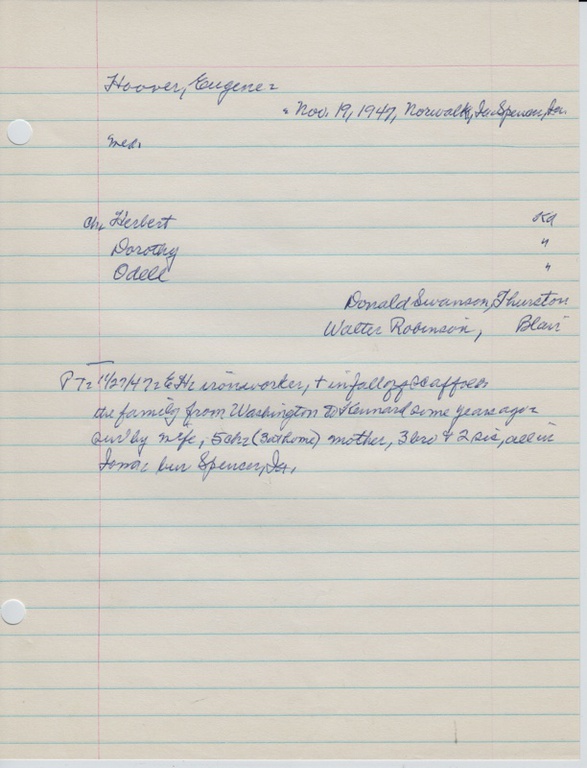 Hoover, Eugene =
= Nov. 19, 1947, Norwalk, Ia = Spencer, Ia.
med.
ch, Herbert Kd
Dorothy "
Odell "
Donald Swanson, Thurston
Walter Robinson, Blair
P T = 11/27/47 = E H = ironworker, + in fall off scaffold
the family from Washington to Kennard some years ago =
surv by wife, 5 ch = (3 at home) mother, 3 bro + 2 sis, all in
Iowa = bur Spencer, Ia.